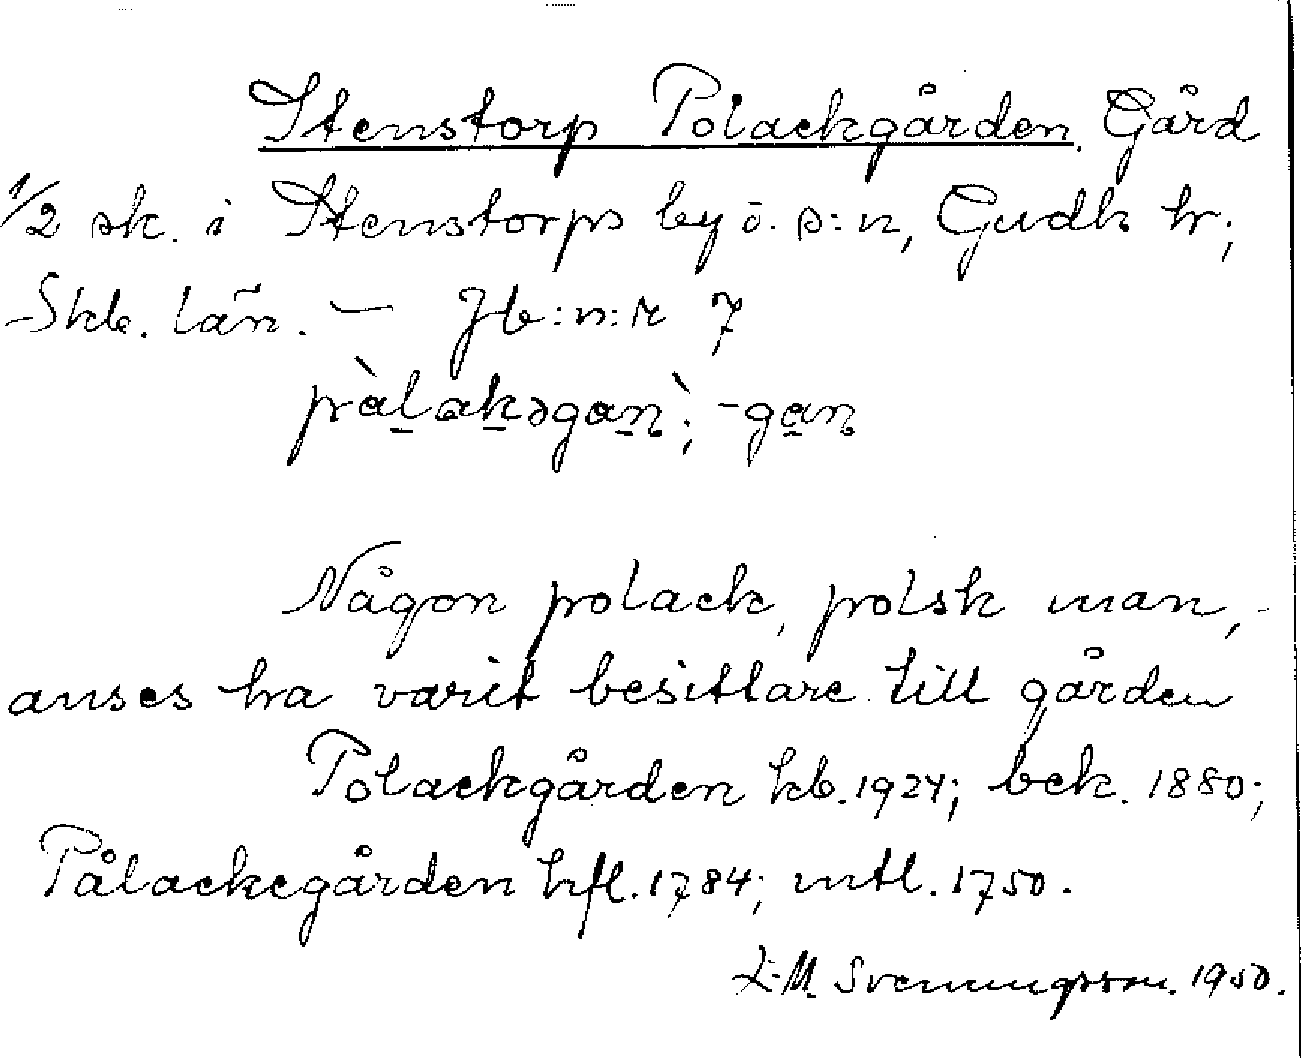 Stenstorp Polackgården. Gård
1/2 sk. i Stenstorps by o. s:n, Gudh. hr;
Skb. län. — Jb:n:r 7
pàlakəgan̠; -gan
Någon polack, polsk man,
anses ha varit besittare till gården
Polackgården kb. 1924; bek. 1880;
Pålackegården hfl. 1784; mtl. 1750.
L-M. Svenungsson. 1950.